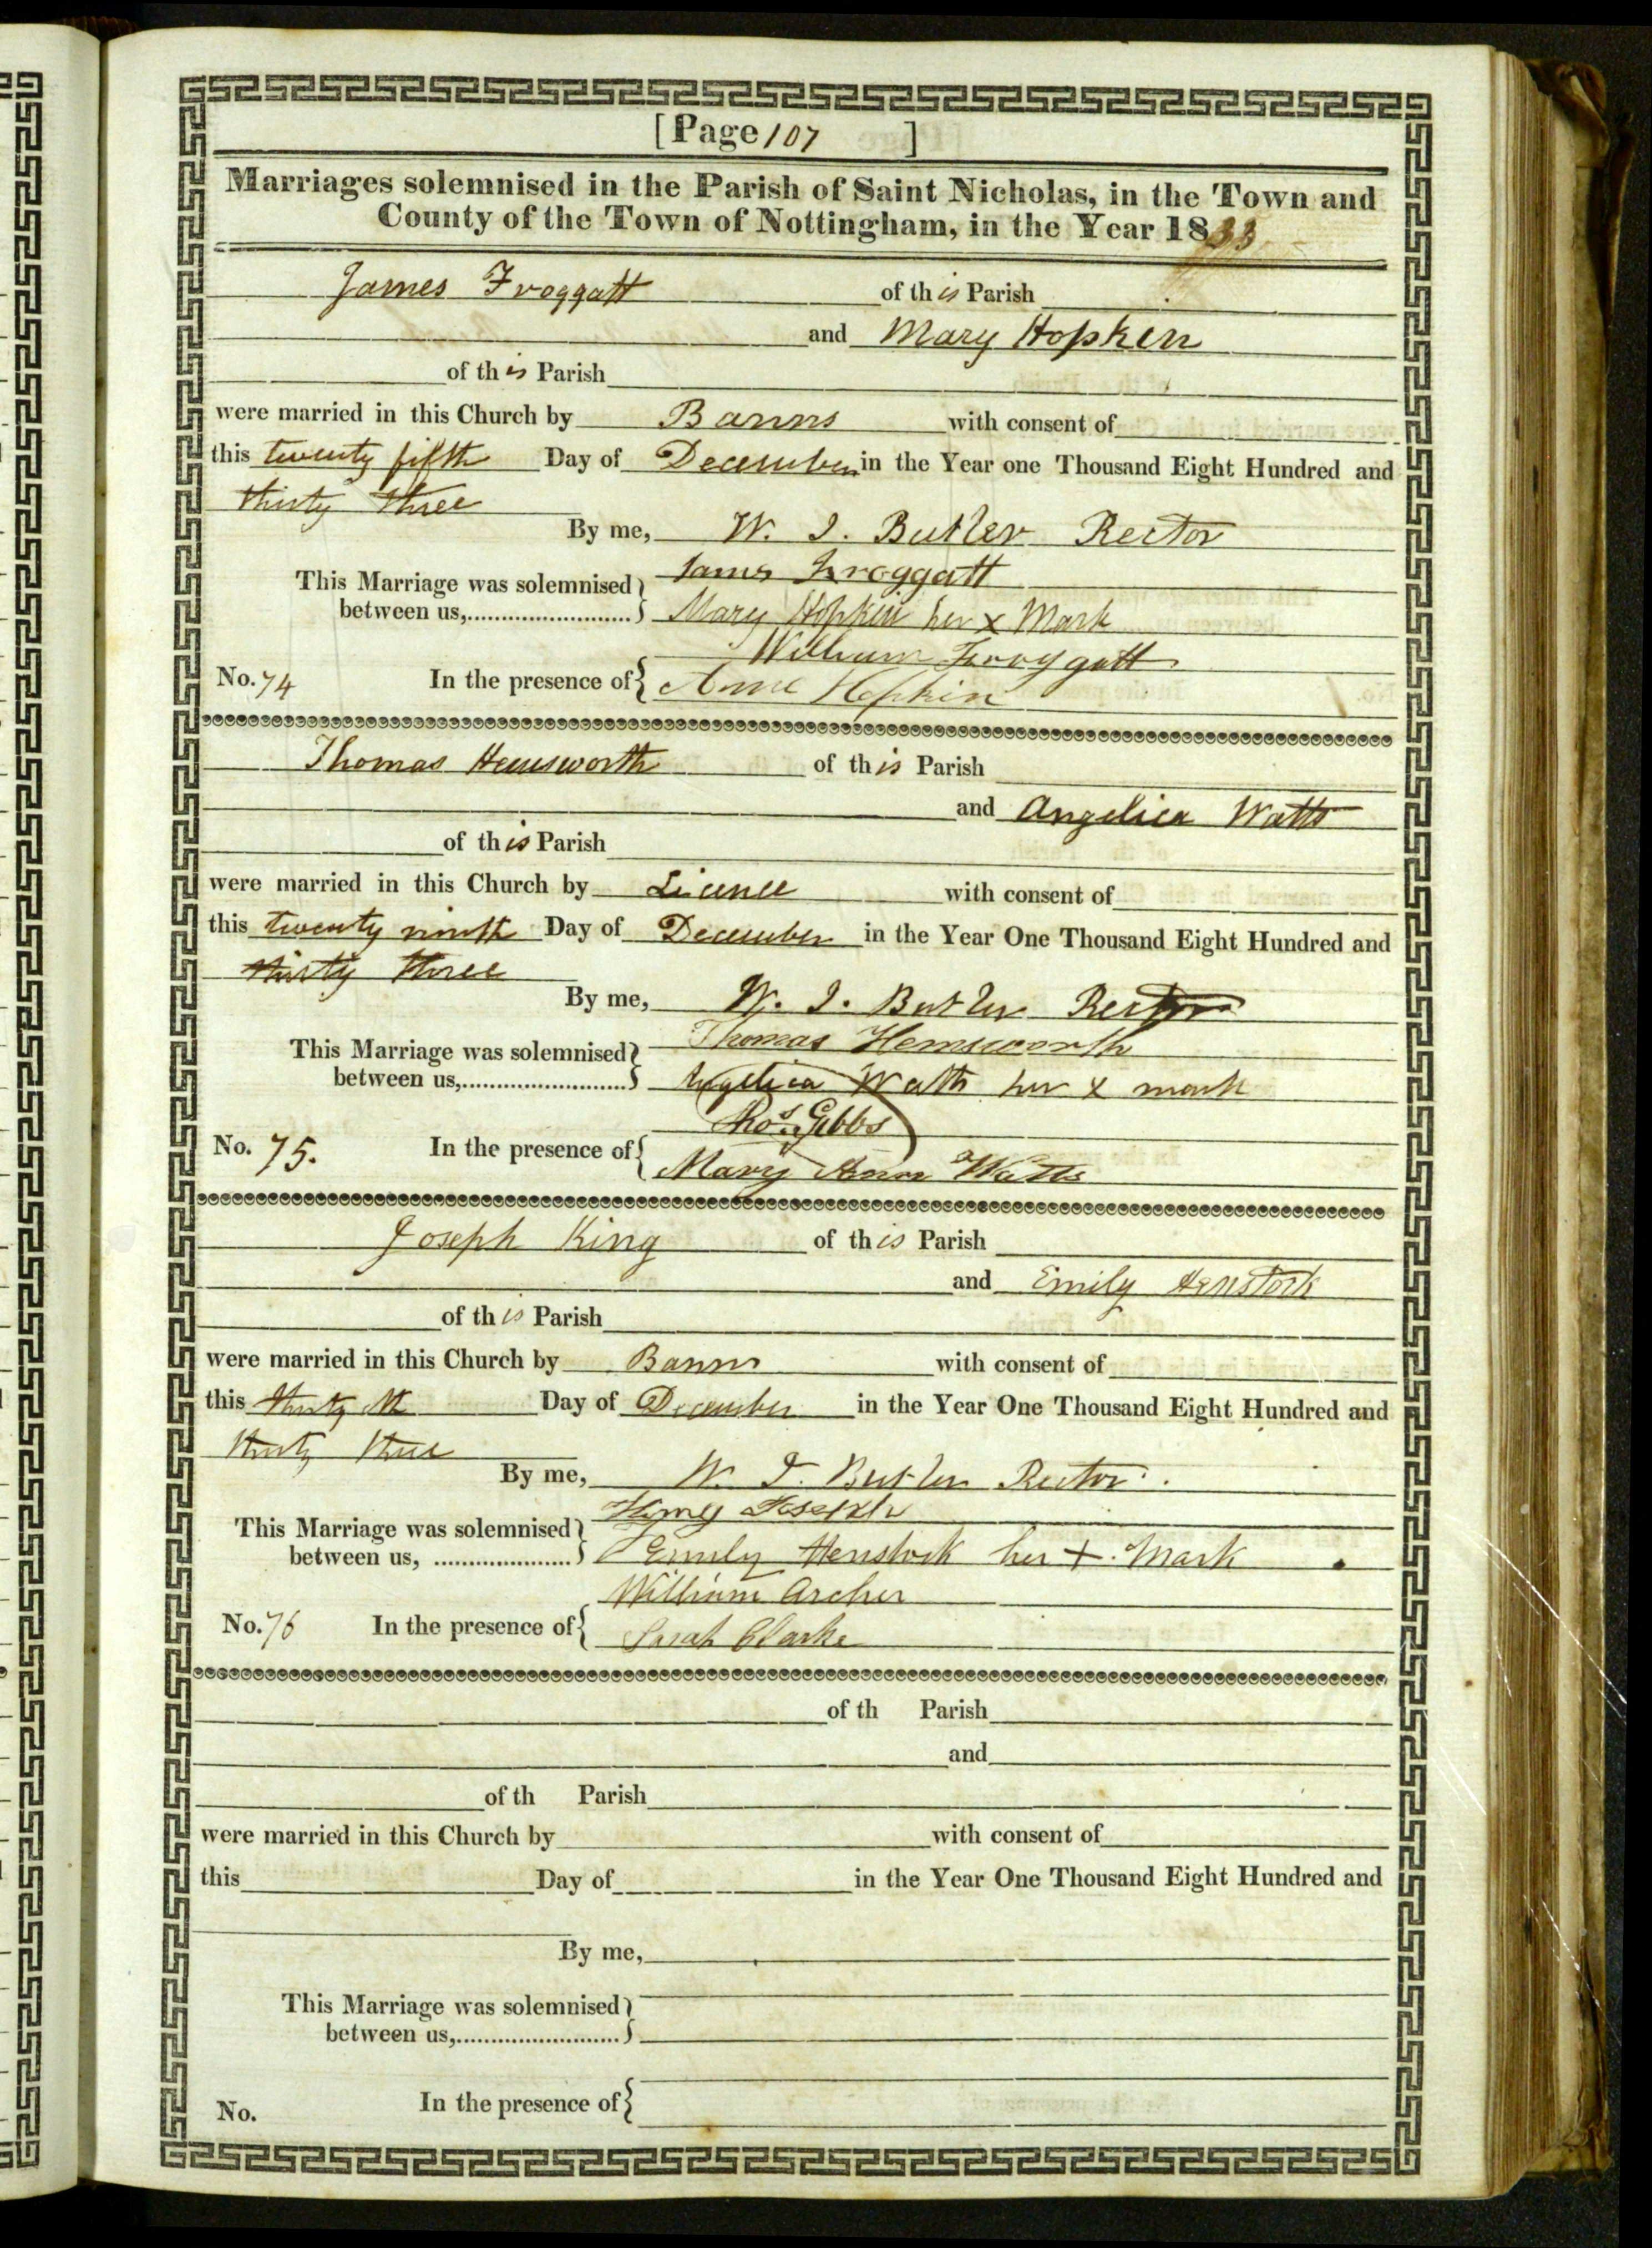 [Page 107 ]
Marriages solemnised in the Parish of Saint Nicholas, in the Town and
County of the Town of Nottingham, in the Year 1833
James Froggatt of this Parish
and Mary Hopkin
of this Parish
were married in this Church by Banns with consent of
this twenty fifth Day of December in the Year one Thousand Eight Hundred and
thirty three
By me, W. J. Butler Rector
This Marriage was solemnised James Froggatt
between us, Mary Hopkin her x Mark
William Froggatt
No. 74 In the presence of Anne Hopkin
Thomas Hemsworth of this Parish
and Angelica Watts
of this Parish
were married in this Church by Licence with consent of
this twenty ninth Day of December in the Year One Thousand Eight Hundred and
thirty three
By me, W. J. Butler Rector
This Marriage was solemnised Thomas Hemsworth
between us, Angelica Watts her x mark
Thos. Gibbs
No. 75. In the presence of Mary Ann Watts
Joseph King of this Parish
and Emily Henstock
of this Parish
were married in this Church by Banns with consent of
this thirtyth Day of December in the Year One Thousand Eight Hundred and
thirty three
By me, W. J. Butler Rector.
This Marriage was solemnised Joseph
between us, Emily Henstock her + Mark
William Archer
No. 76 In the presence of Sarah Clarke
of th Parish
and
of th Parish
were married in this Church by with consent of
this Day of in the Year One Thousand Eight Hundred and
By me,
This Marriage was solemnised
between us,
No. In the presence of